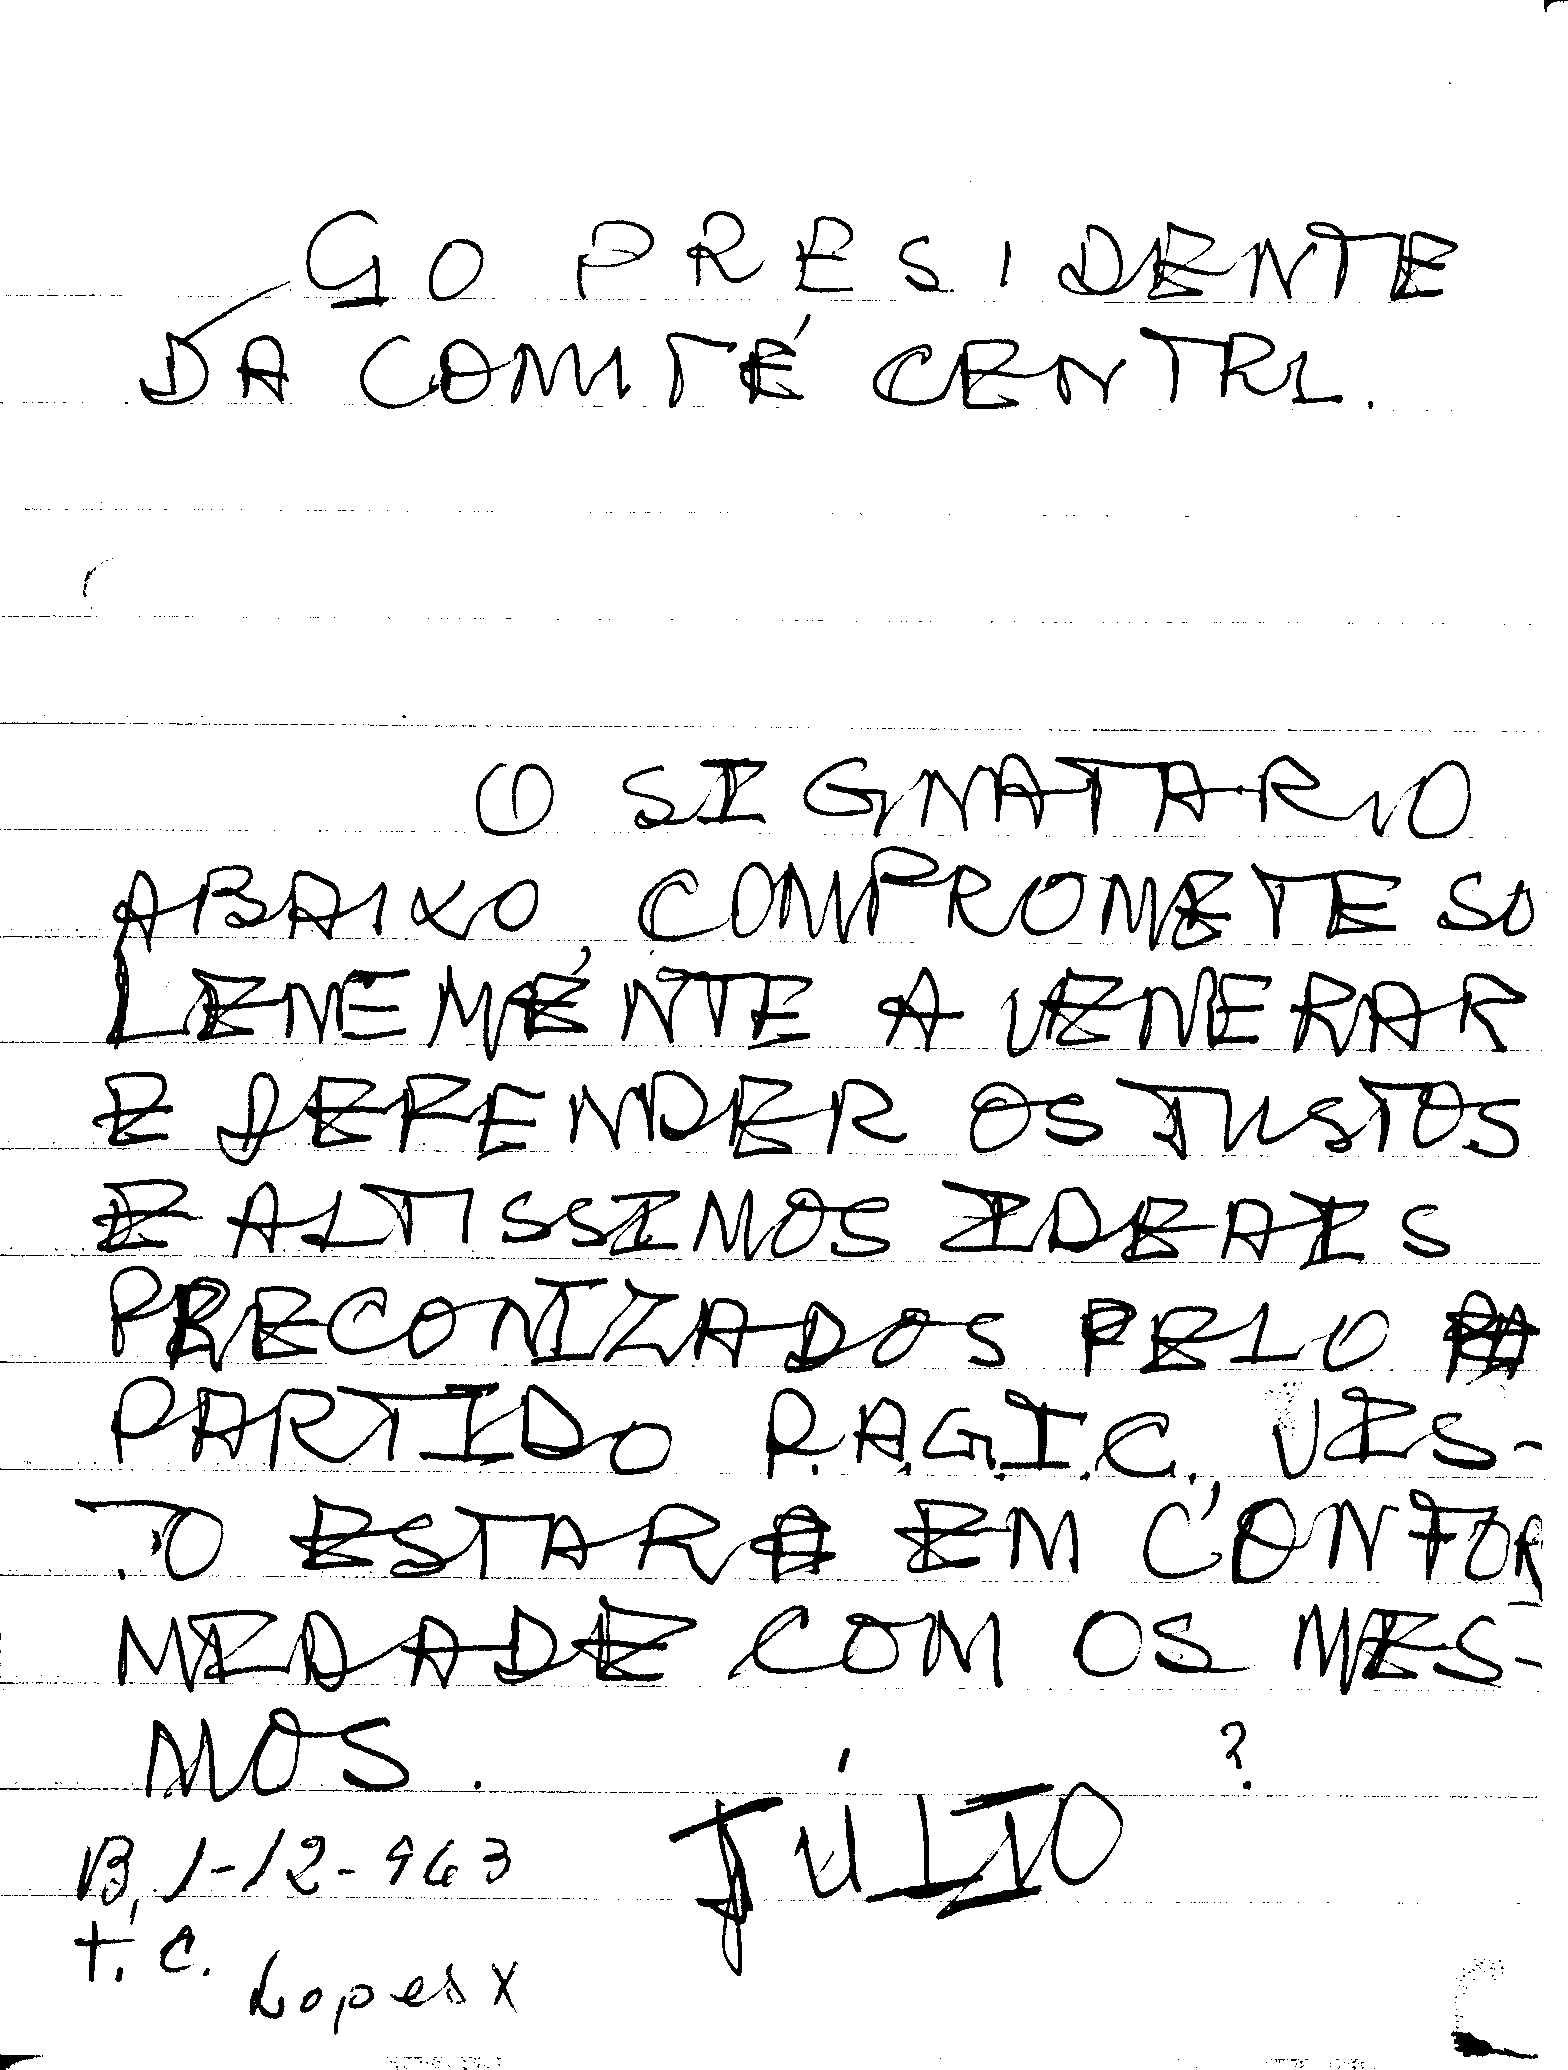 GO PRESIDENTE
DA COMITÉ CENTRL.
O SIGNATARIO
ABAIXO, COMPROMETE SO
LENEMÉNTE A VENERAR
E DEFENDER OS JUSTOS
E ALTISSIMOS IDEAIS
PRECONIZADOS PELO PA
PARTIDO P.A.G.I.C. VIS-
TO ESTARE EM CONFOR
MIDADE COM OS MES-
MOS.
?
JÚLIO
B, 1-12-963
T. C.
Lopes X